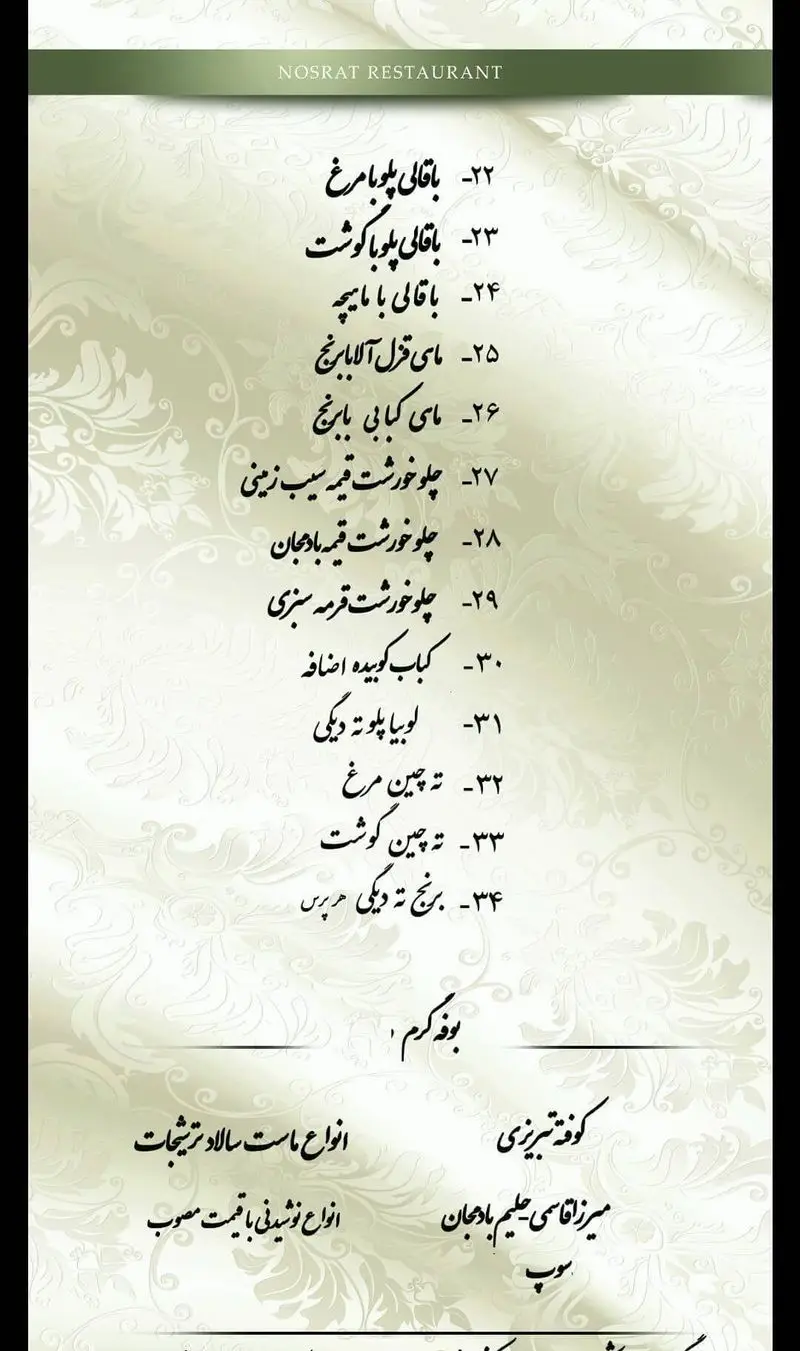 NOSRAT RESTAURANT
۲۲- باقالی پلو با مرغ
۲۳- باقالی پلو با گوشت
۲۴- باقالی با ماهیچه
۲۵- ماهی قزل آلا با برنج
۲۶- ماهی کبابی با برنج
۲۷- چلو خورشت قیمه سیب زمینی
۲۸- چلو خورشت قیمه بادمجان
۲۹- چلو خورشت قرمه سبزی
۳۰- کباب کوبیده اضافه
۳۱- لوبیا پلو ته دیگی
۳۲- ته چین مرغ
۳۳- ته چین گوشت
۳۴- برنج ته دیگی هر پرس
بوفه گرم
کوفته تبریزی
میرزاقاسمی-حلیم بادمجان
سوپ
انواع ماست سالاد ترشیجات
انواع نوشیدنی با قیمت مصوب